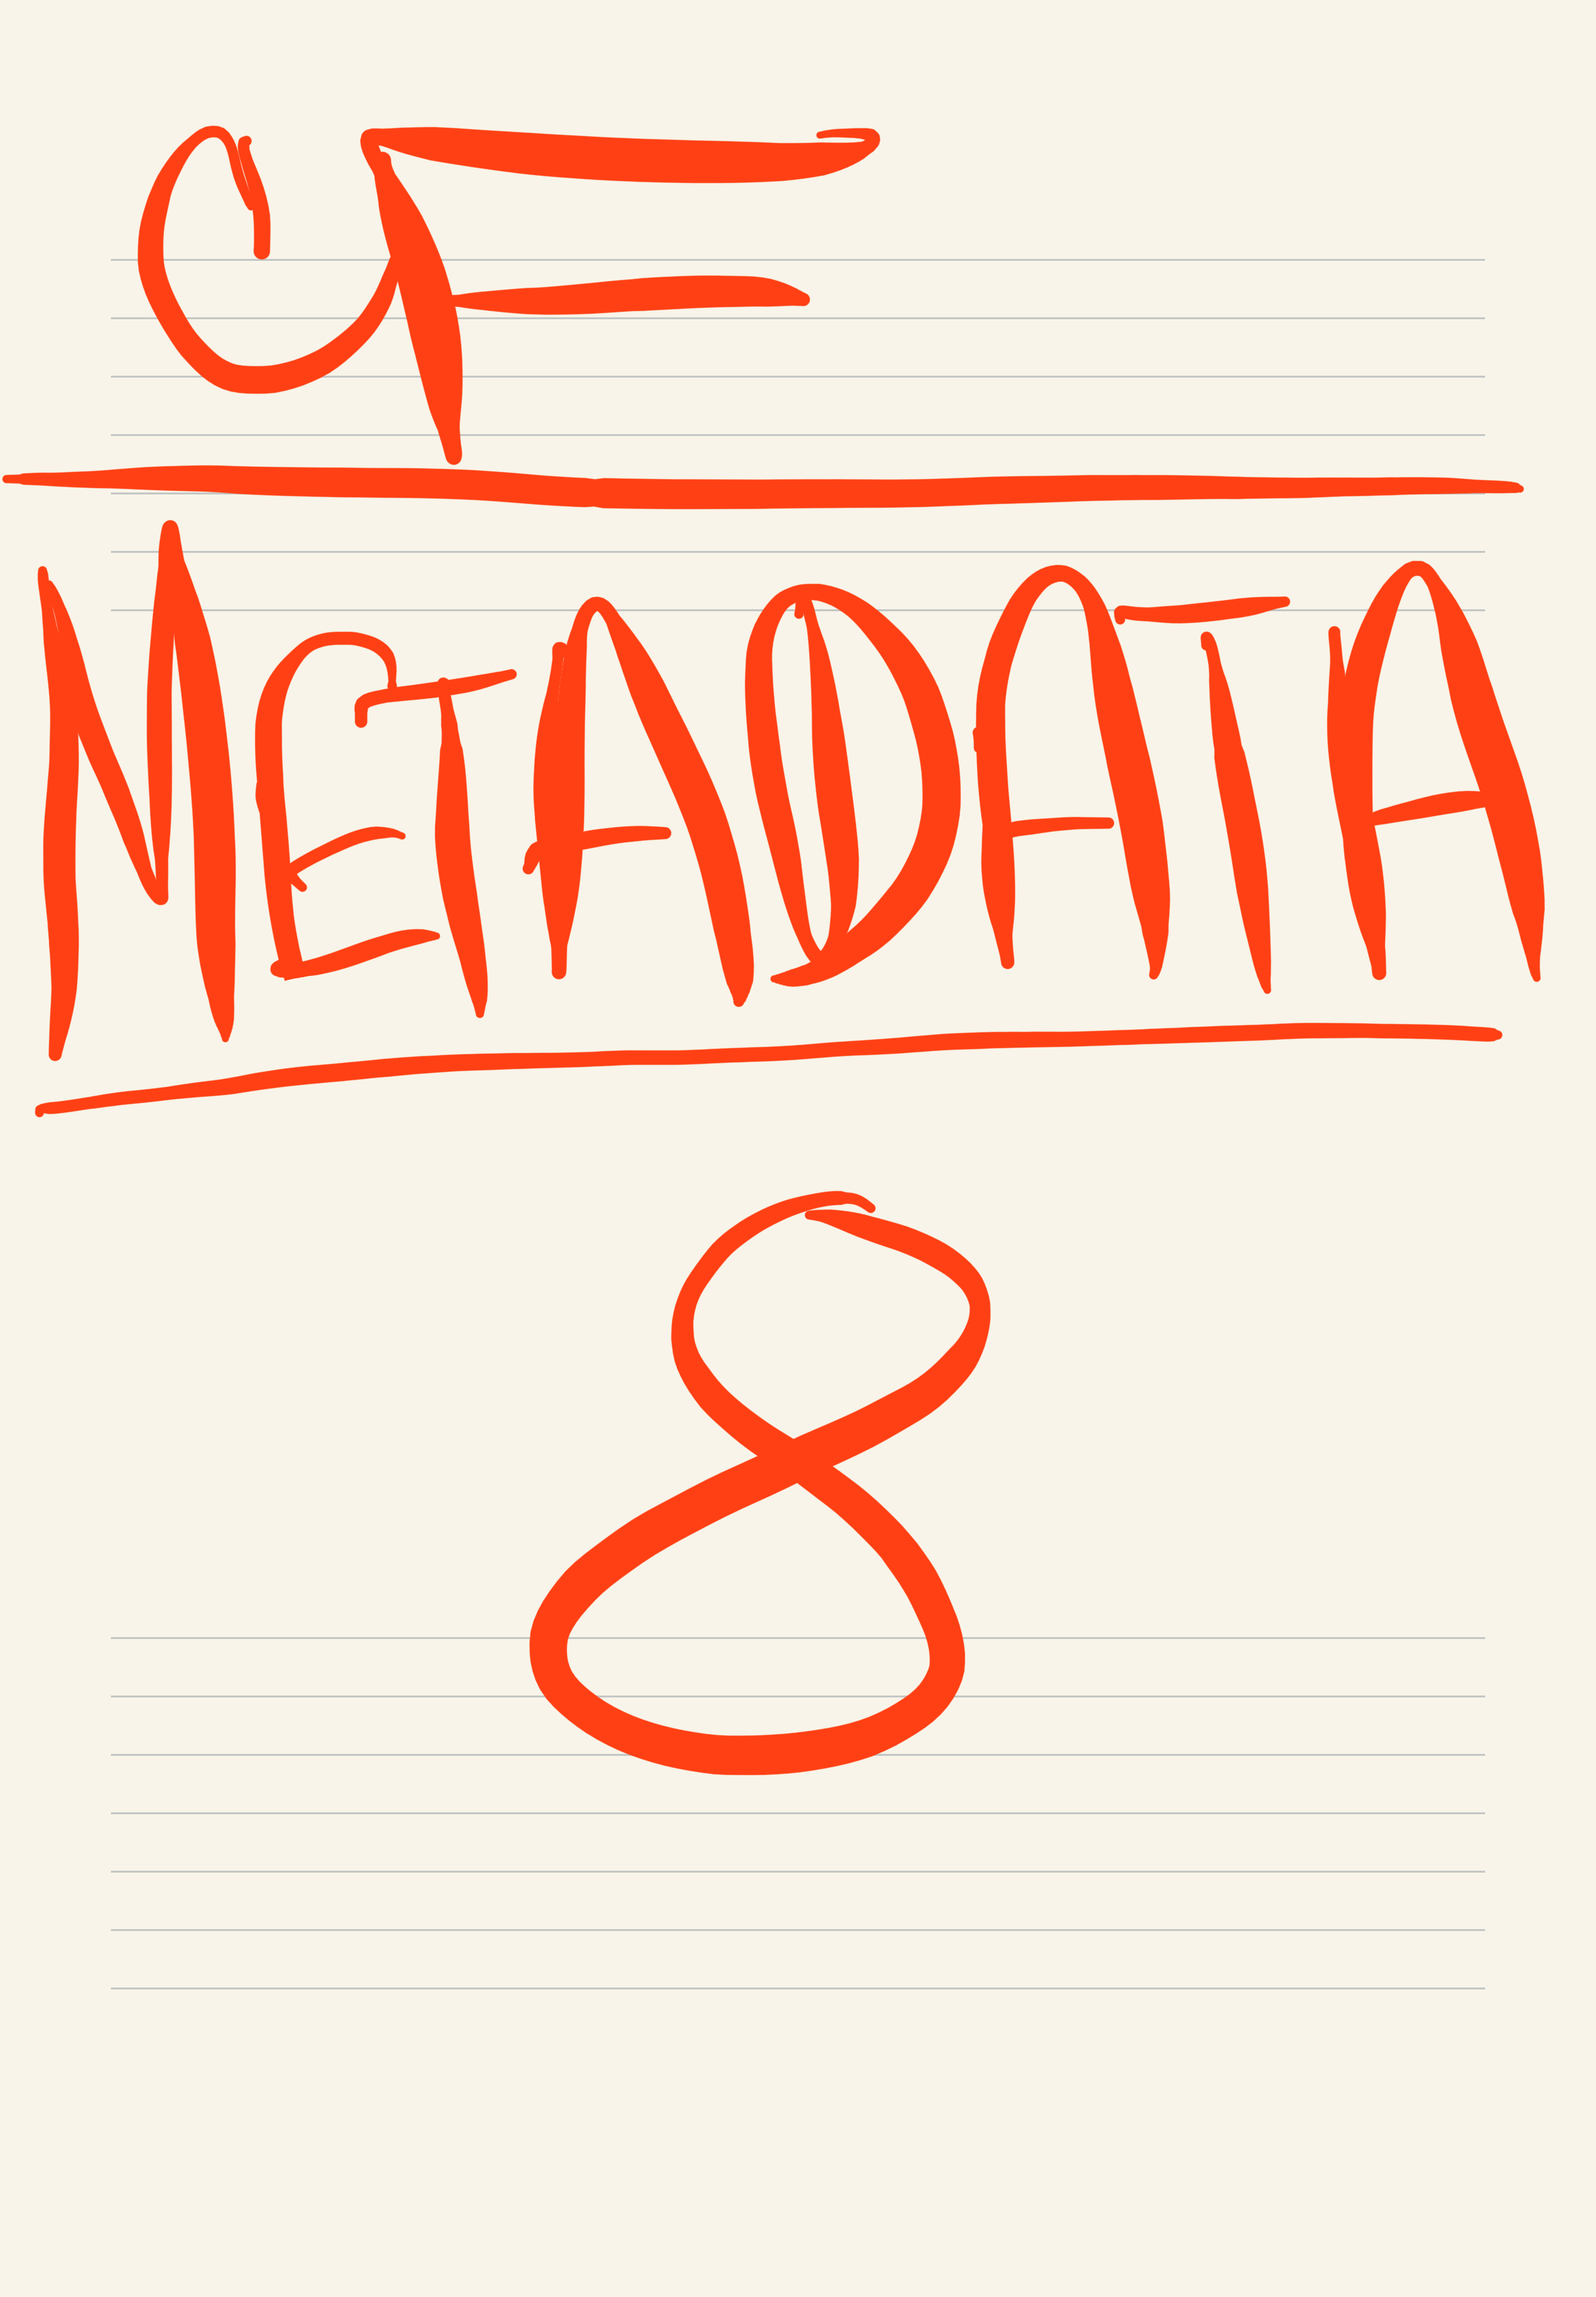 CF
METADATA
8